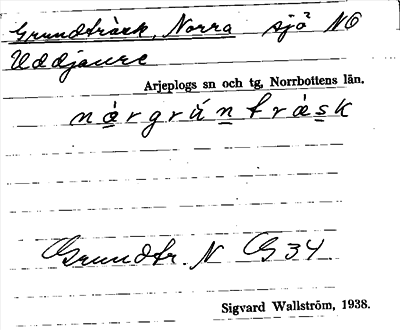 Grundträsk, Norra sjö NO
Uddjaure
Arjeplogs sn och tg, Norrbottens län.
nårgrúntrȧsk
Grundtr. N G34
Sigvard Wallström, 1938.